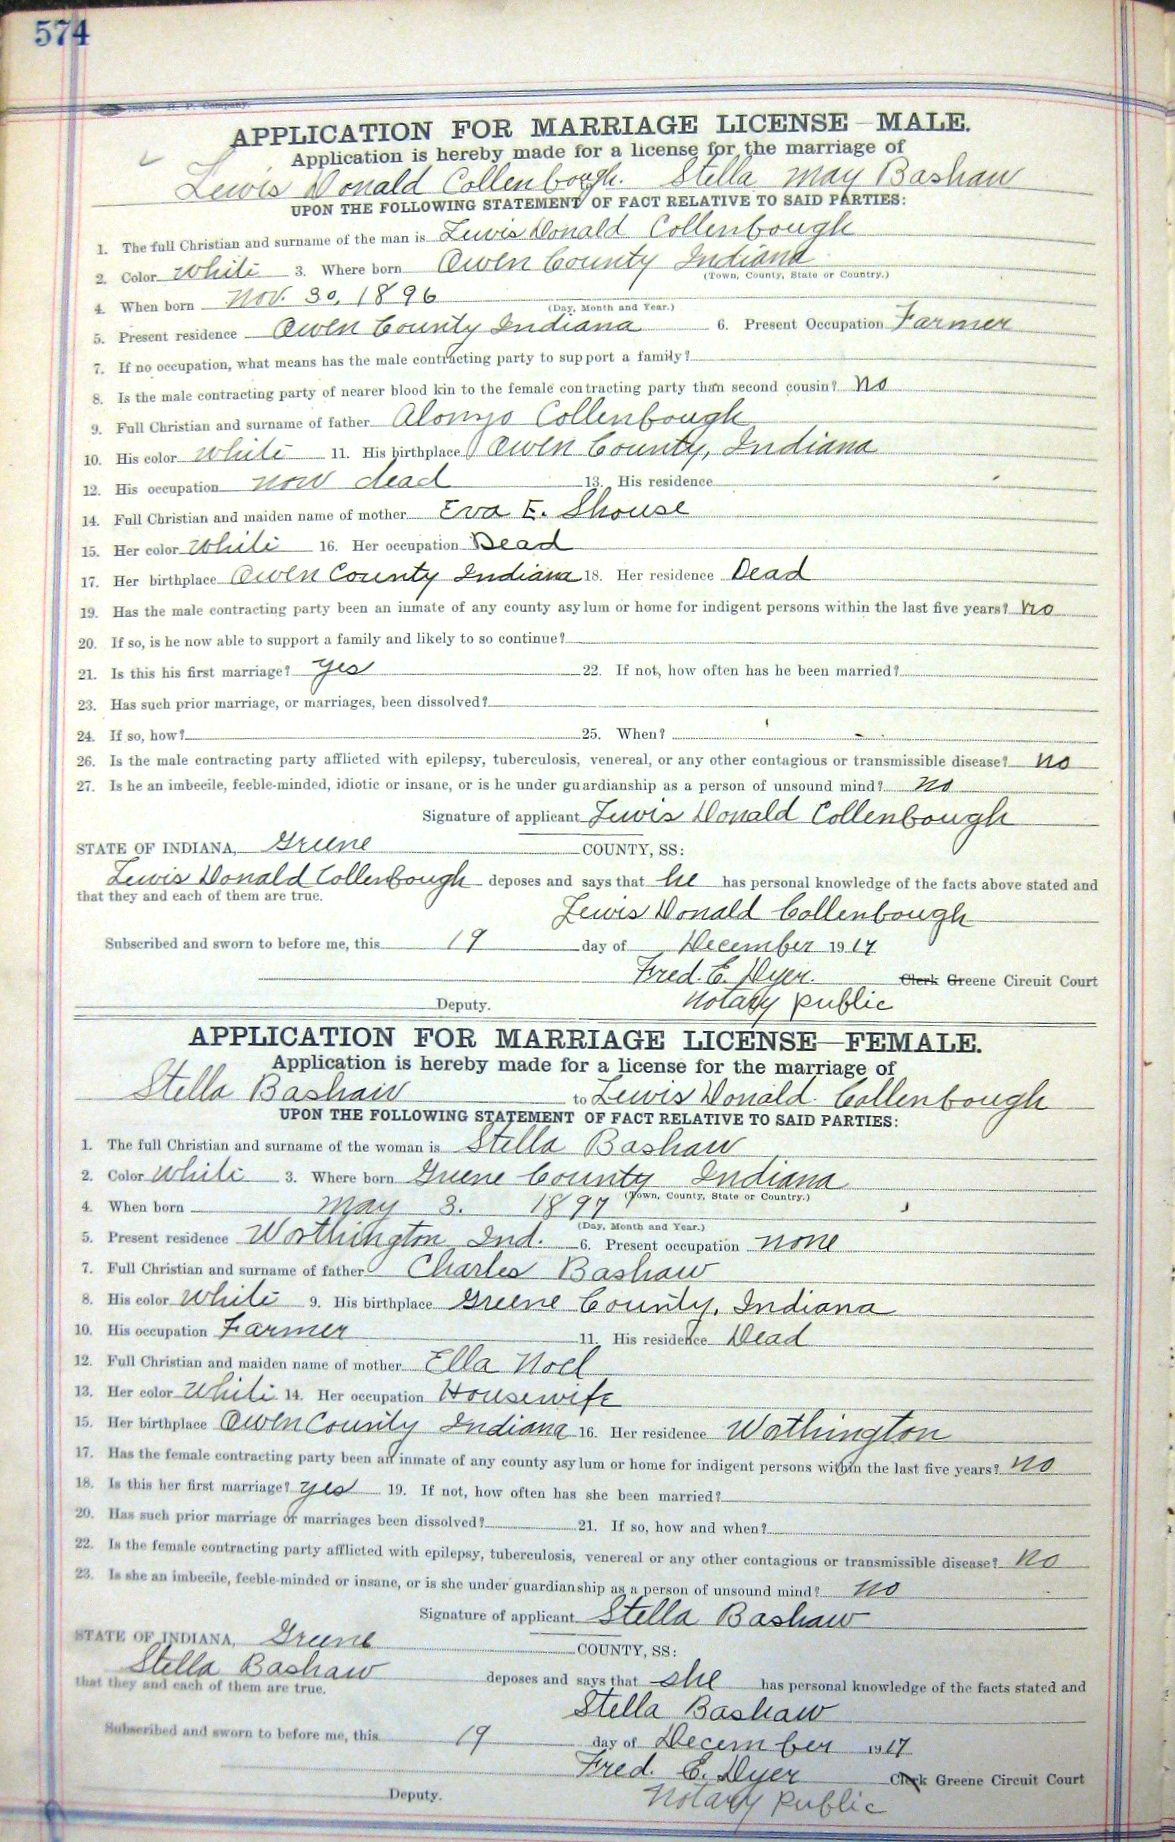 574
APPLICATION FOR MARRIAGE LICENSE—MALE.
Application is hereby made for a license for the marriage of
Lewis Donald Collenbough. Stella May Bashaw
UPON THE FOLLOWING STATEMENT OF FACT RELATIVE TO SAID PARTIES:
1. The full Christian and surname of the man is Lewis Donald Collenbough
2. Color White 3. Where born Owen County Indiana
(Town, County, State or Country.)
4. When born Nov. 30, 1896
(Day, Month and Year.)
5. Present residence Owen County Indiana 6. Present Occupation Farmer
7. If no occupation, what means has the male contracting party to support a family?
8. Is the male contracting party of nearer blood kin to the female contracting party than second cousin? no
9. Full Christian and surname of father Alonzo Collenbough
10. His color White 11. His birthplace Owen County, Indiana
12. His occupation now dead 13. His residence
14. Full Christian and maiden name of mother Eva E. Shouse
15. Her color White 16. Her occupation Dead
17. Her birthplace Owen County Indiana 18. Her residence Dead
19. Has the male contracting party been an inmate of any county asylum or home for indigent persons within the last five years? no
20. If so, is he now able to support a family and likely to so continue?
21. Is this his first marriage? yes 22. If not, how often has he been married?
23. Has such prior marriage, or marriages, been dissolved?
24. If so, how? 25. When?
26. Is the male contracting party afflicted with epilepsy, tuberculosis, venereal, or any other contagious or transmissible disease? no
27. Is he an imbecile, feeble-minded, idiotic or insane, or is he under guardianship as a person of unsound mind? no
Signature of applicant Lewis Donald Collenbough
STATE OF INDIANA, Greene COUNTY, SS:
Lewis Donald Collenbough deposes and says that he has personal knowledge of the facts above stated and
that they and each of them are true.
Lewis Donald Collenbough
Subscribed and sworn to before me, this 19 day of December 1917
Fred. E. Dyer. Clerk Greene Circuit Court
Deputy. Notary Public
APPLICATION FOR MARRIAGE LICENSE—FEMALE.
Application is hereby made for a license for the marriage of
Stella Bashaw to Lewis Donald Collenbough
UPON THE FOLLOWING STATEMENT OF FACT RELATIVE TO SAID PARTIES:
1. The full Christian and surname of the woman is Stella Bashaw
2. Color White 3. Where born Greene County Indiana
(Town, County, State or Country.)
4. When born May 3. 1897
(Day, Month and Year.)
5. Present residence Worthington Ind. 6. Present occupation none
7. Full Christian and surname of father Charles Bashaw
8. His color White 9. His birthplace Greene County, Indiana
10. His occupation Farmer 11. His residence Dead
12. Full Christian and maiden name of mother Ella Noel
13. Her color White 14. Her occupation Housewife
15. Her birthplace Owen County Indiana 16. Her residence Worthington
17. Has the female contracting party been an inmate of any county asylum or home for indigent persons within the last five years? no
18. Is this her first marriage? yes 19. If not, how often has she been married?
20. Has such prior marriage or marriages been dissolved? 21. If so, how and when?
22. Is the female contracting party afflicted with epilepsy, tuberculosis, venereal or any other contagious or transmissible disease? no
23. Is she an imbecile, feeble-minded or insane, or is she under guardianship as a person of unsound mind? no
Signature of applicant Stella Bashaw
STATE OF INDIANA, Greene COUNTY, SS:
Stella Bashaw deposes and says that she has personal knowledge of the facts stated and
that they and each of them are true.
Stella Bashaw
Subscribed and sworn to before me, this 19 day of December 1917
Fred. E. Dyer Clerk Greene Circuit Court
Deputy. Notary Public